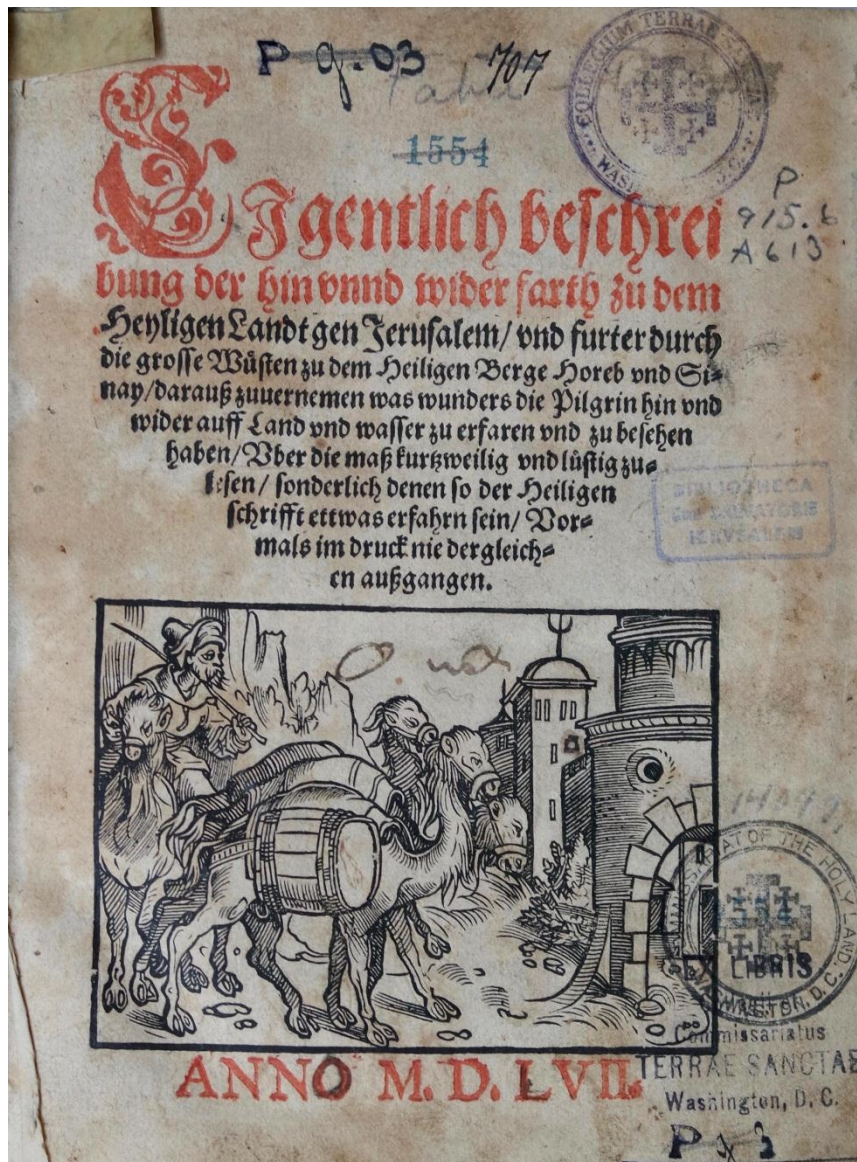 P q.03 707
COLLEGIUM TERRAE SANCTAE
WASHINGTON D.C.
1554
P
915.6
A613
EJgentlich beschrei
bung der hin vnnd wider farth zu dem
Heyligen Landt gen Jerusalem/ vnd furter durch
die grosse Wüsten zu dem Heiligen Berge Horeb vnd Si⸗
nay/darauß zuuernemen was wunders die Pilgrin hin vnd
wider auff Land vnd wasser zu erfaren vnd zu besehen
haben/Vber die maß kurtzweilig vnd lüstig zu⸗
lesen/ sonderlich denen so der Heiligen
schrifft ettwas erfahrn sein/ Vor⸗
mals im druck nie dergleich⸗
en außgangen.
BIBLIOTHECA
JERUSALEM
COMMISSARIAT OF THE HOLY LAND.
1554
EX LIBRIS
WASHINGTON, D. C.
ANNO M. D. LVII.
Commissariatus
TERRAE SANCTAE
Washington, D. C.